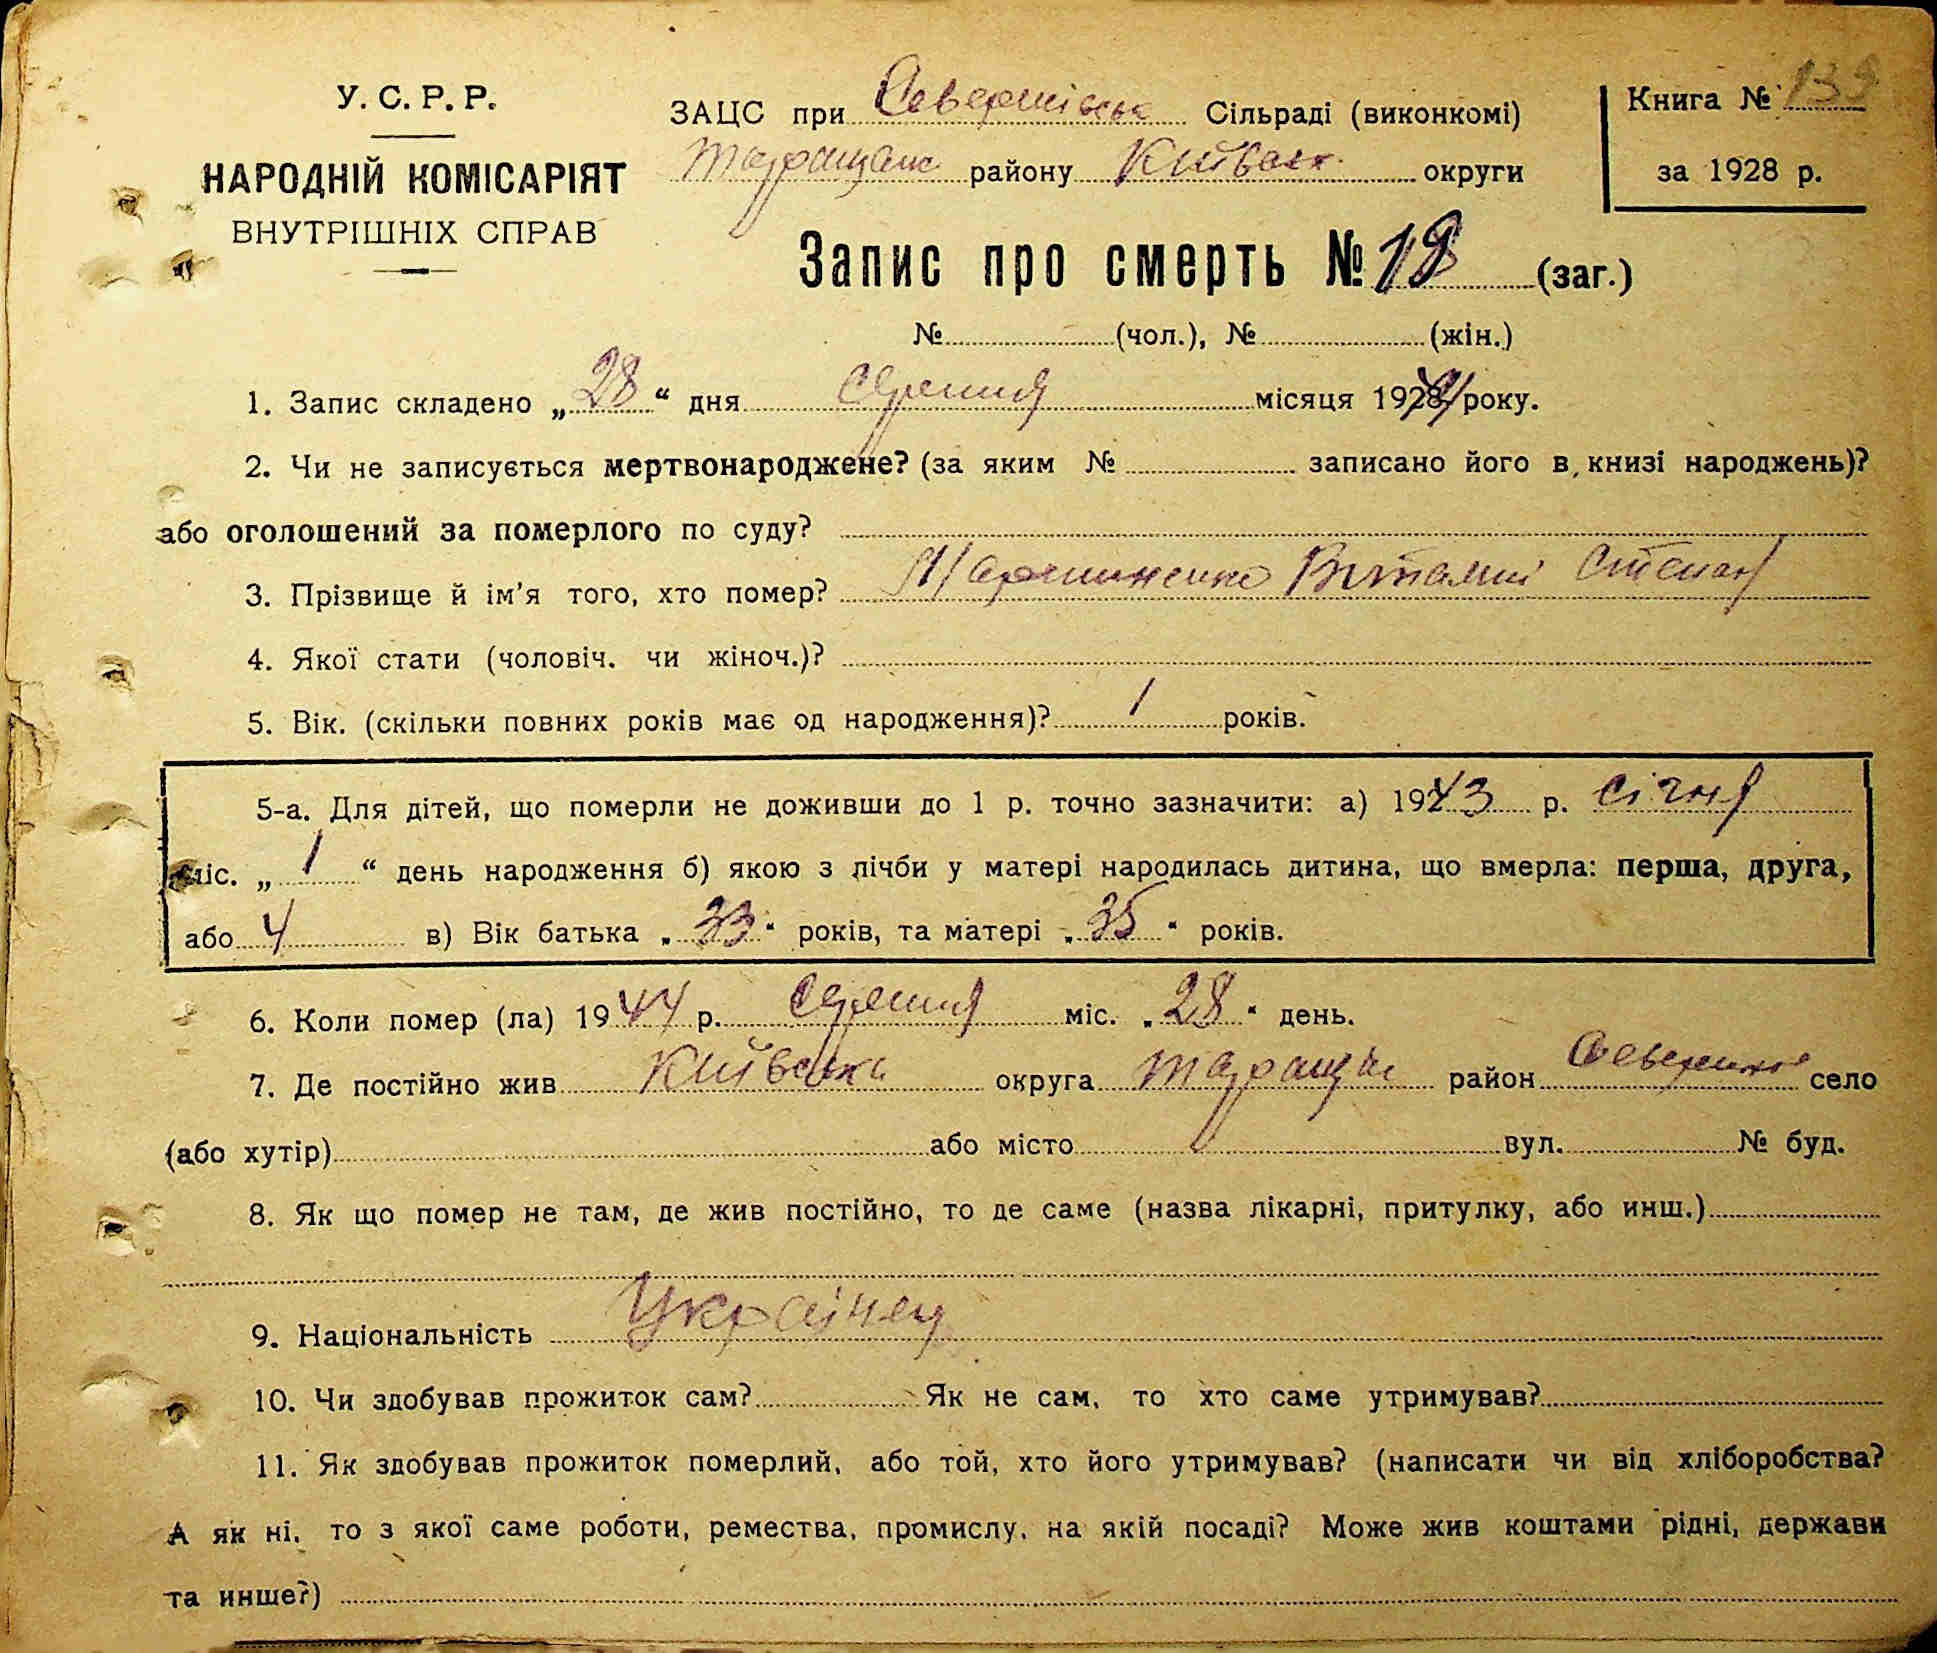 У. С. Р. Р.
НАРОДНІЙ КОМІСАРІЯТ
ВНУТРІШНІХ СПРАВ
ЗАЦС при Северинівські Сільраді (виконкомі)
Таращанс району Київськ округи
Книга № 139
за 1928 р.
Запис про смерть № 18 (заг.)
№ (чол.), № (жін.)
1. Запис складено „28“ дня серпня місяця 1928 року.
2. Чи не записується мертвонароджене? (за яким № записано його в книзі народжень)?
або оголошений за померлого по суду?
3. Прізвище й ім'я того, хто помер? Виталий Степан
4. Якої стати (чоловіч. чи жіноч.)?
5. Вік. (скільки повних років має од народження)? 1 років.
5-а. Для дітей, що померли не доживши до 1 р. точно зазначити: а) 1943 р. січня
міс. „1“ день народження б) якою з лічби у матері народилась дитина, що вмерла: перша, друга,
або 4 в) Вік батька „33“ років, та матері „35“ років.
6. Коли помер (ла) 1944 р. серпня міс. „28“ день.
7. Де постійно жив Київська округа Таращан район село
(або хутір) або місто вул. № буд.
8. Як що помер не там, де жив постійно, то де саме (назва лікарні, притулку, або инш.)
9. Національність Українец
10. Чи здобував прожиток сам? Як не сам, то хто саме утримував?
11. Як здобував прожиток померлий, або той, хто його утримував? (написати чи від хліборобства?
А як ні, то з якої саме роботи, ремества, промислу, на якій посаді? Може жив коштами рідні, держави
та инше?)